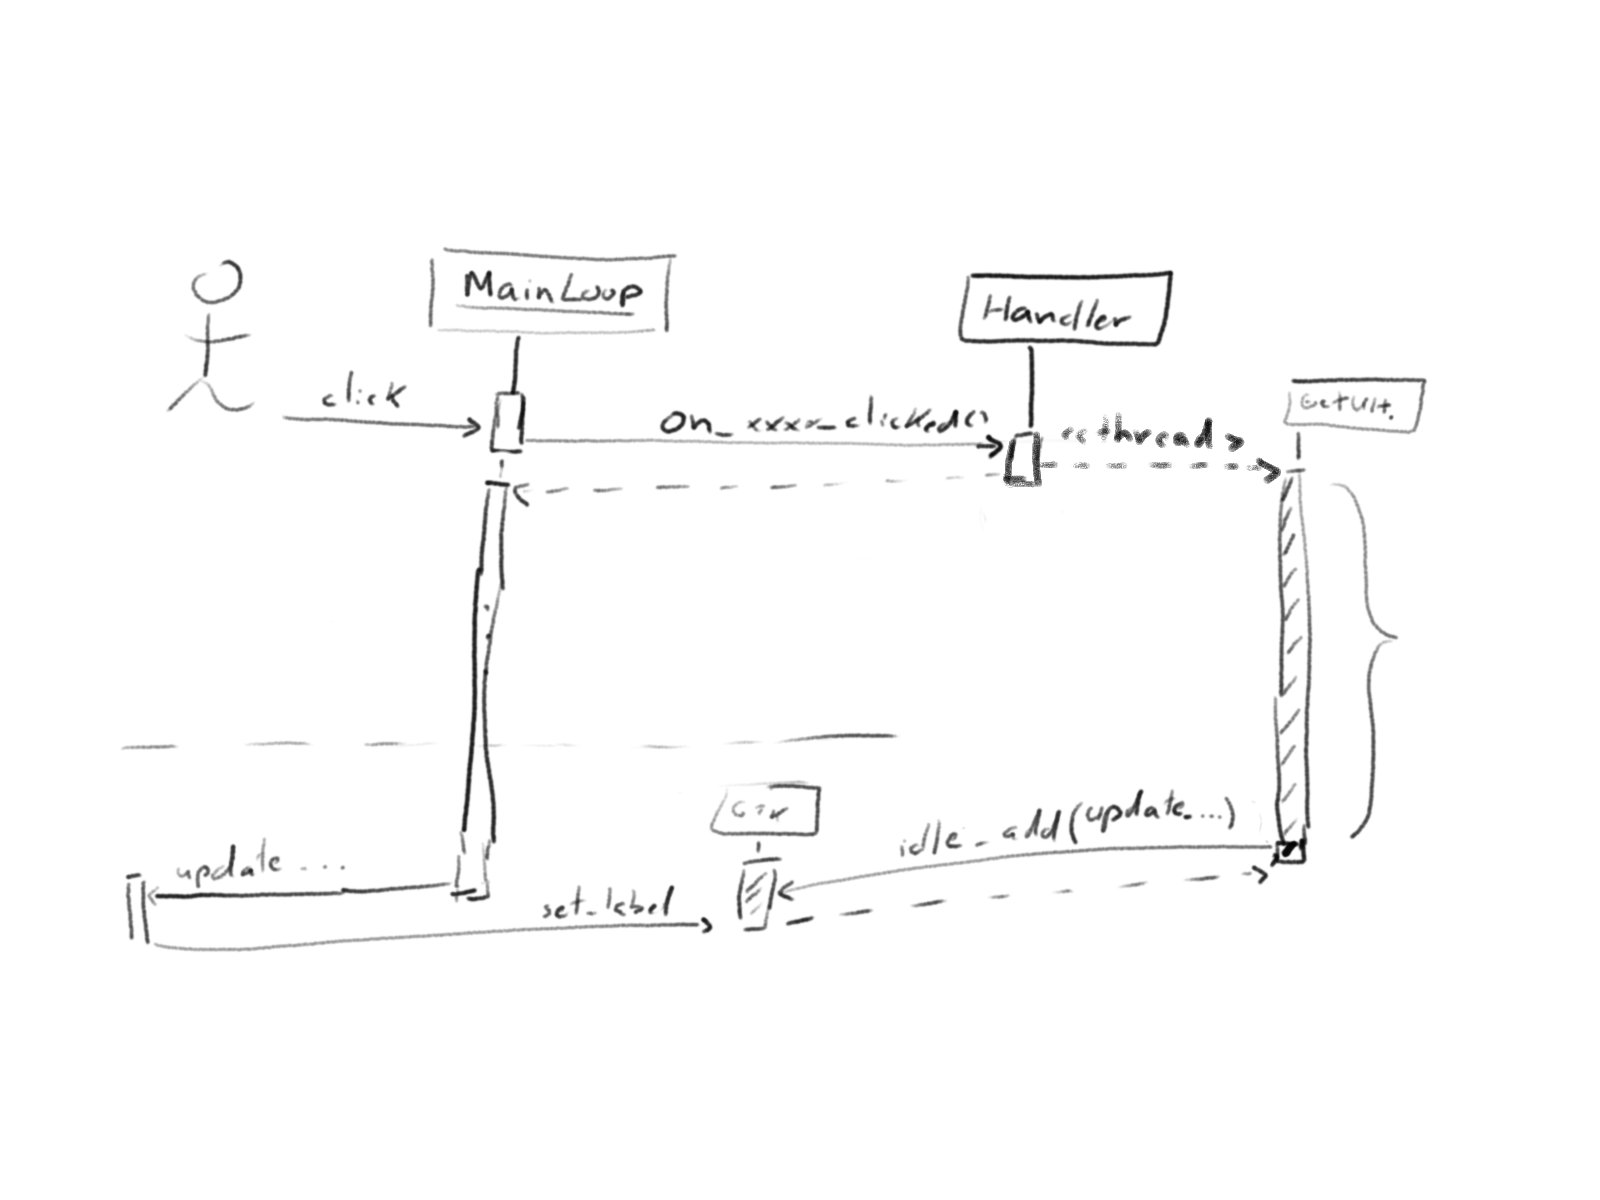 MainLoop
Handler
click
on_xxxx_clicked()
<<thread>
update ....
idle_add(update....)
set_label